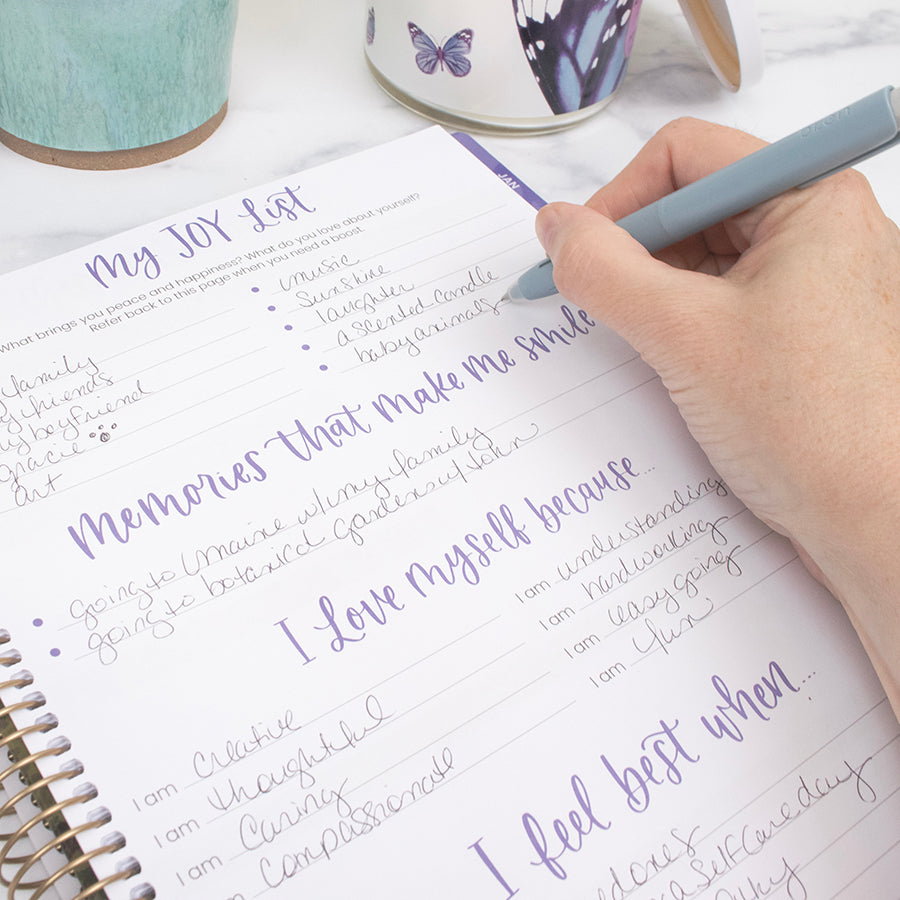 JAN
My JOY List
What brings you peace and happiness? What do you love about yourself?
Refer back to this page when you need a boost.
family
friends
boyfriend
gracie
art
music
sunshine
laughter
a scented candle
baby animals
Memories that make me smile
going to maine w/ my family
going to botanical gardens w/ John
I love myself because...
I am creative
I am thoughtful
I am caring
compassionate
I am understanding
I am hardworking
I am easy going
I am fun
I feel best when...
a self care day